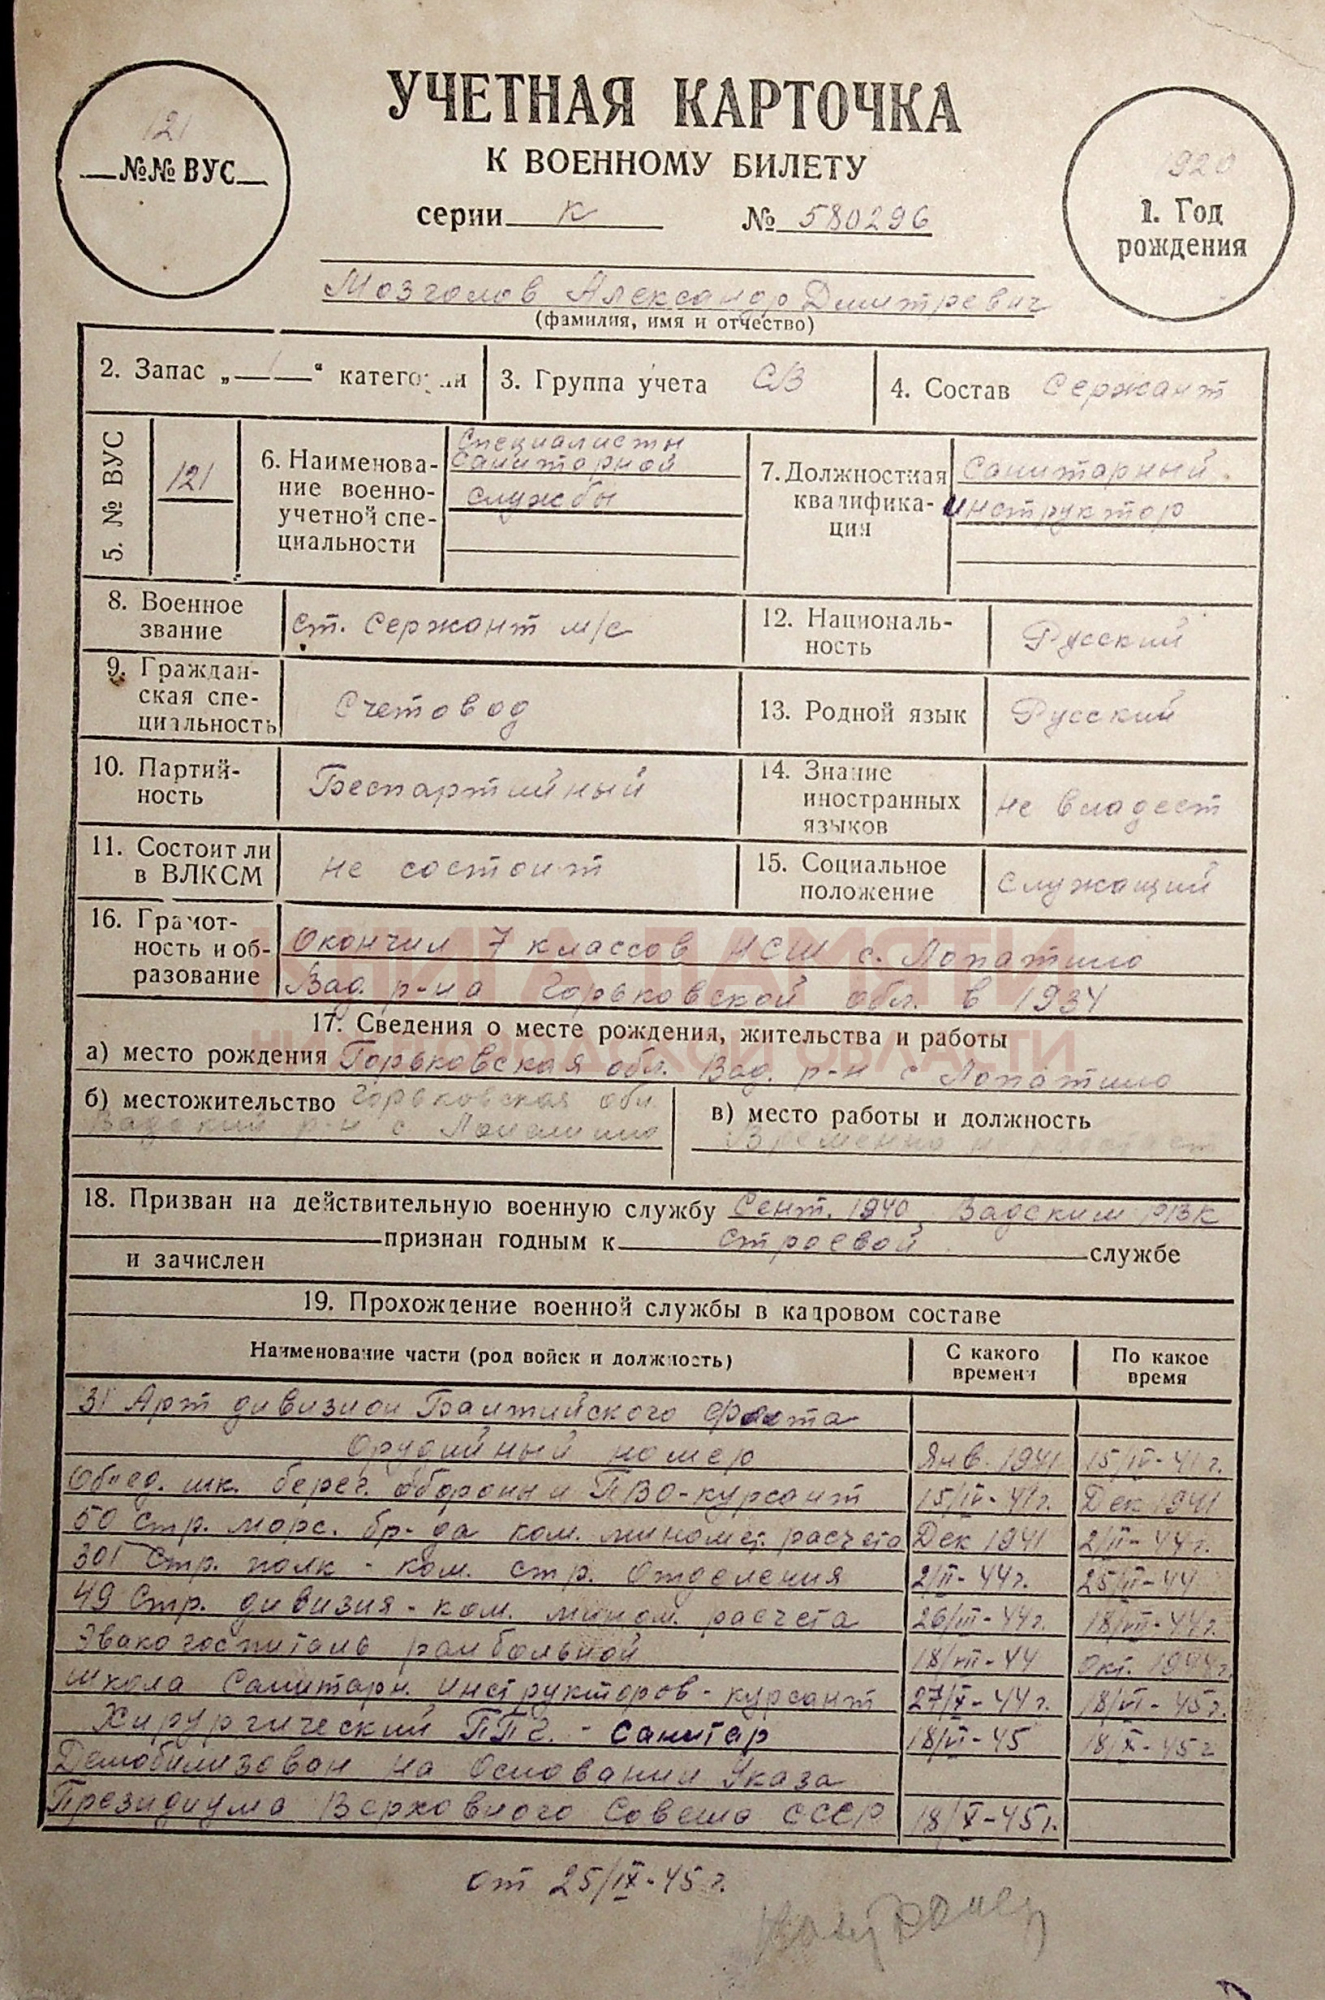 УЧЕТНАЯ КАРТОЧКА
К ВОЕННОМУ БИЛЕТУ
121
№№ ВУС
серии К № 580296
1920
1. Год
рождения
Мозголов Александр Дмитревич
(фамилия, имя и отчество)
2. Запас „ 1 “ категории
3. Группа учета С/З
4. Состав Сержант
5. № ВУС 121
6. Наименова-
ние военно-
учетной спе-
циальности
Специалисты
санитарной
службы
7. Должностная
квалифика-
ция
Санитарный
инструктор
8. Военное
звание
ст. Сержант м/с
12. Националь-
ность
Русский
9. Граждан-
ская спе-
циальность
Счетовод
13. Родной язык Русский
10. Партий-
ность
Беспартийный
14. Знание
иностранных
языков
не владеет
11. Состоит ли
в ВЛКСМ
не состоит
15. Социальное
положение
служащий
16. Грамот-
ность и об-
разование
Окончил 7 классов НСШ с. Лопатино
Вад. р-на Горьковской обл. в 1934
КНИГА ПАМЯТИ
НИЖЕГОРОДСКОЙ ОБЛАСТИ
17. Сведения о месте рождения, жительства и работы
а) место рождения Горьковская обл. Вад. р-н с Лопатино
б) местожительство Горьковская обл.
Вадский р-н с. Лопатино
в) место работы и должность
Временно н работает
18. Призван на действительную военную службу Сент. 1940 Вадским РВК
признан годным к строевой службе
и зачислен
19. Прохождение военной службы в кадровом составе
Наименование части (род войск и должность)
С какого
времени
По какое
время
31 Арт дивизион Балтийского Флота
орудийный номер Янв. 1941 15/IV-41г.
Объед. шк. берег. обороны и ПВО-курсант 15/IV-41г. Дек 1941
50 Стр. морс. бр-да ком. миномет. расчета Дек 1941 2/II-44г.
301 Стр. полк - ком. стр. Отделения 2/II-44г. 25/II-44
49 Стр. дивизия - ком. мином. расчета 26/II-44г. 18/VII-44г.
Эвакогоспиталь ранбольной 18/VII-44 Окт. 1944г.
школа Санитарн. инструкторов - курсант 27/X-44г. 18/VI-45г.
Хирургический ППГ. - санитар 18/VI-45 18/X-45г
Демобилизован на Основании Указа
Президиума Верховного Совета СССР 18/X-45г.
от 25/IX-45г.